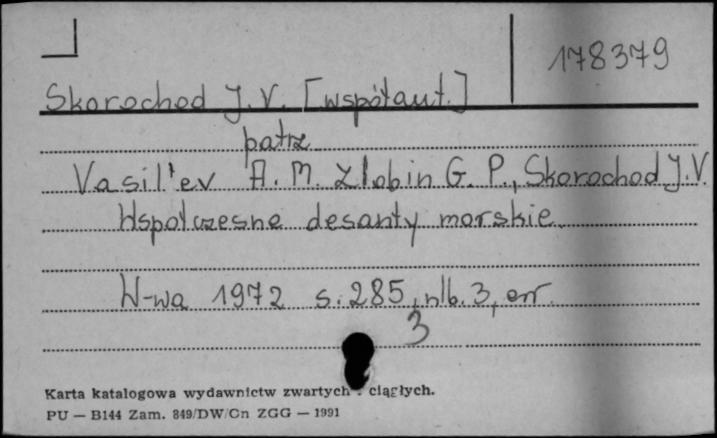 178379
Skorochod J. V. [współaut.]
patrz
Vasil'ev A. M. Zlobin G. P., Skorochod J. V.
Współczesne desanty morskie.
W-wa 1972 s. 285, nlb. 3, err.
3
Karta katalogowa wydawnictw zwartych ciągłych.
PU — B144 Zam. 849/DW/Cn ZGG — 1991